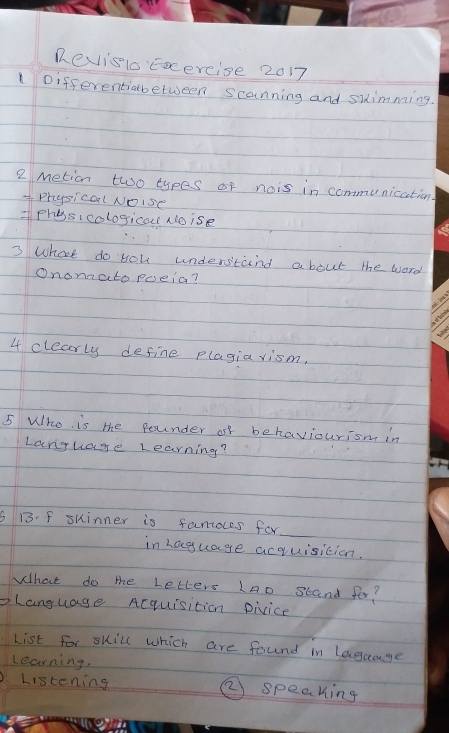 Revisio Excercise 2017
1 Differentiatbetween scanning and skimming.
2 Metion two types of nois in communication.
= Physical Noise
= Phsicological Noise
3 What do you understand about the word
Onomatopoeia?
4 clearly define plagiarism.
5 Who is the founder of behaviourism in
Language Learning?
6 B.F skinner is famoues for
in Laguage acquisition.
What do the Letters LAD stand for?
Language Acquisition Divice
List for skill which are found in Laguage
Learning.
Listening ② speaking